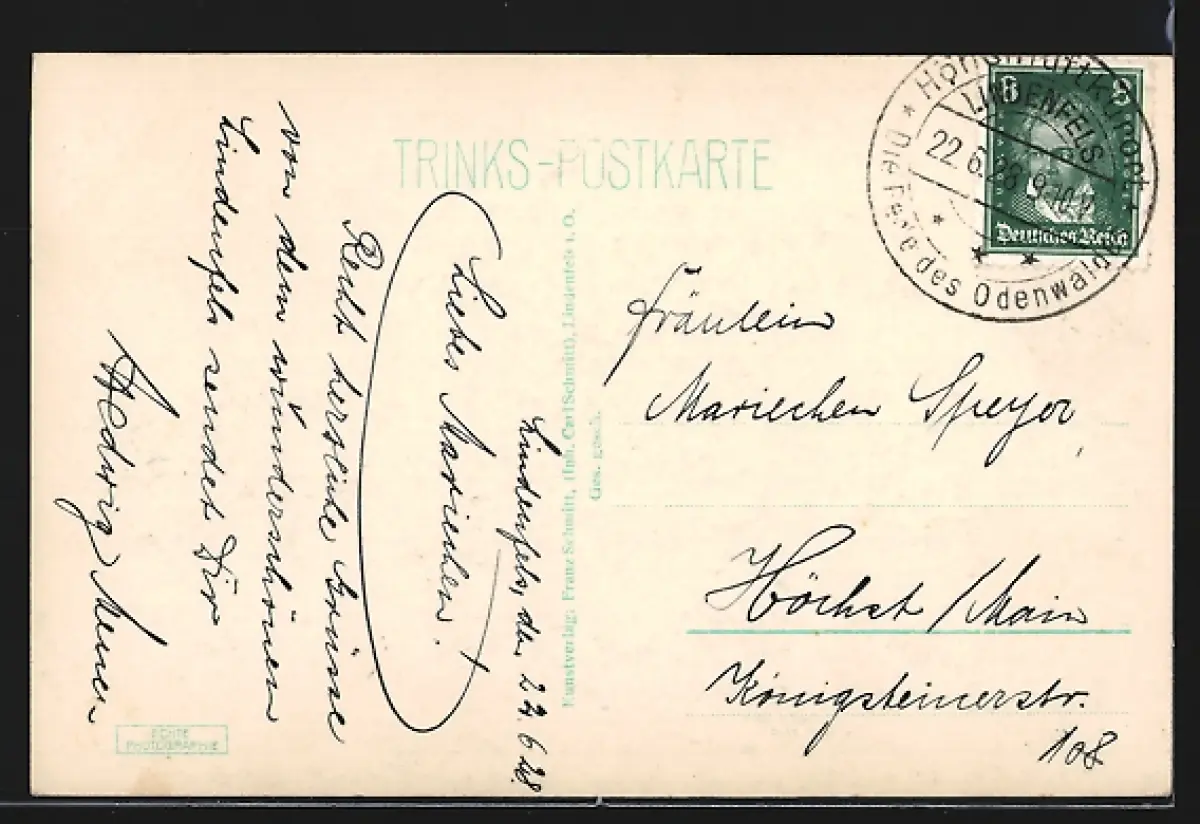 TRINKS-POSTKARTE
Höhenluftkurort
LINDENFELS
22.6.28 8-10 V
* Die Perle des Odenwaldes
8 8
Deutsches Reich
Lindenfels, den 22. 6 28.
Liebes Mariechen!
Recht herzliche Grüsse
von dem wunderschönen
Lindenfels sendet Dir
Hedwig
Kunstverlag: Franz Schmitt, (Inh. Carl Schmitt), Lindenfels i. O.
Ges. gesch.
Fräulein
Mariechen Speyer
Höchst / Main
Königsteinerstr.
108
ECHTE
PHOTOGRAPHIE